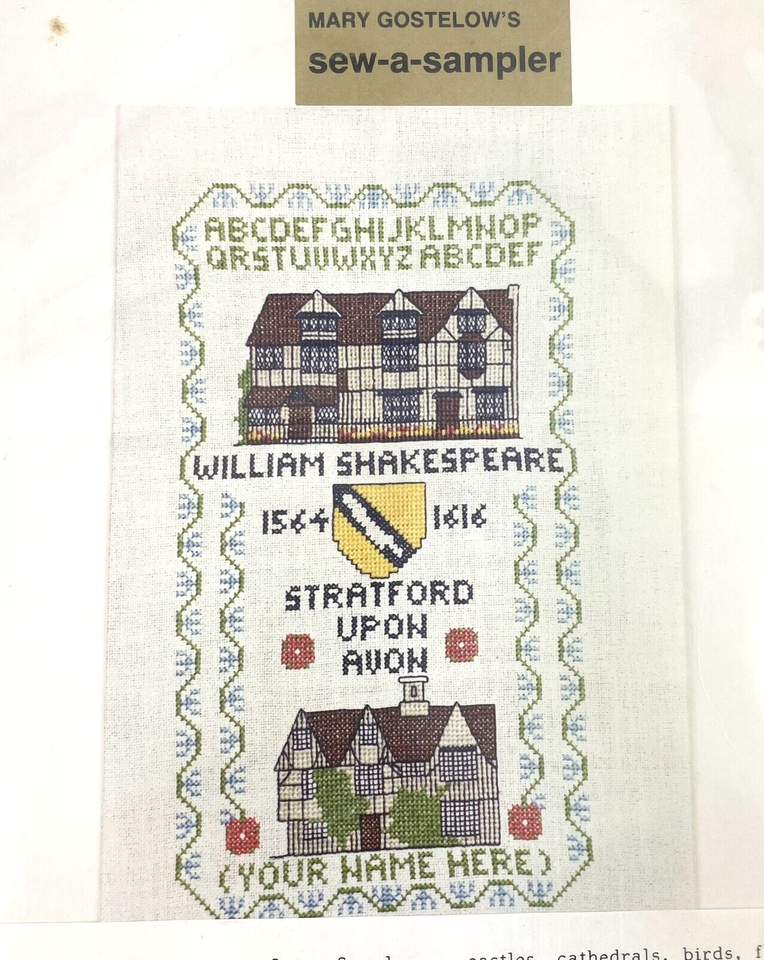 MARY GOSTELOW'S
sew-a-sampler
ABCDEFGHIJKLMNOP
QRSTUVWXYZ ABCDEF
WILLIAM SHAKESPEARE
1564 1616
STRATFORD
UPON
AVON
(YOUR NAME HERE)
castles, cathedrals, birds, f